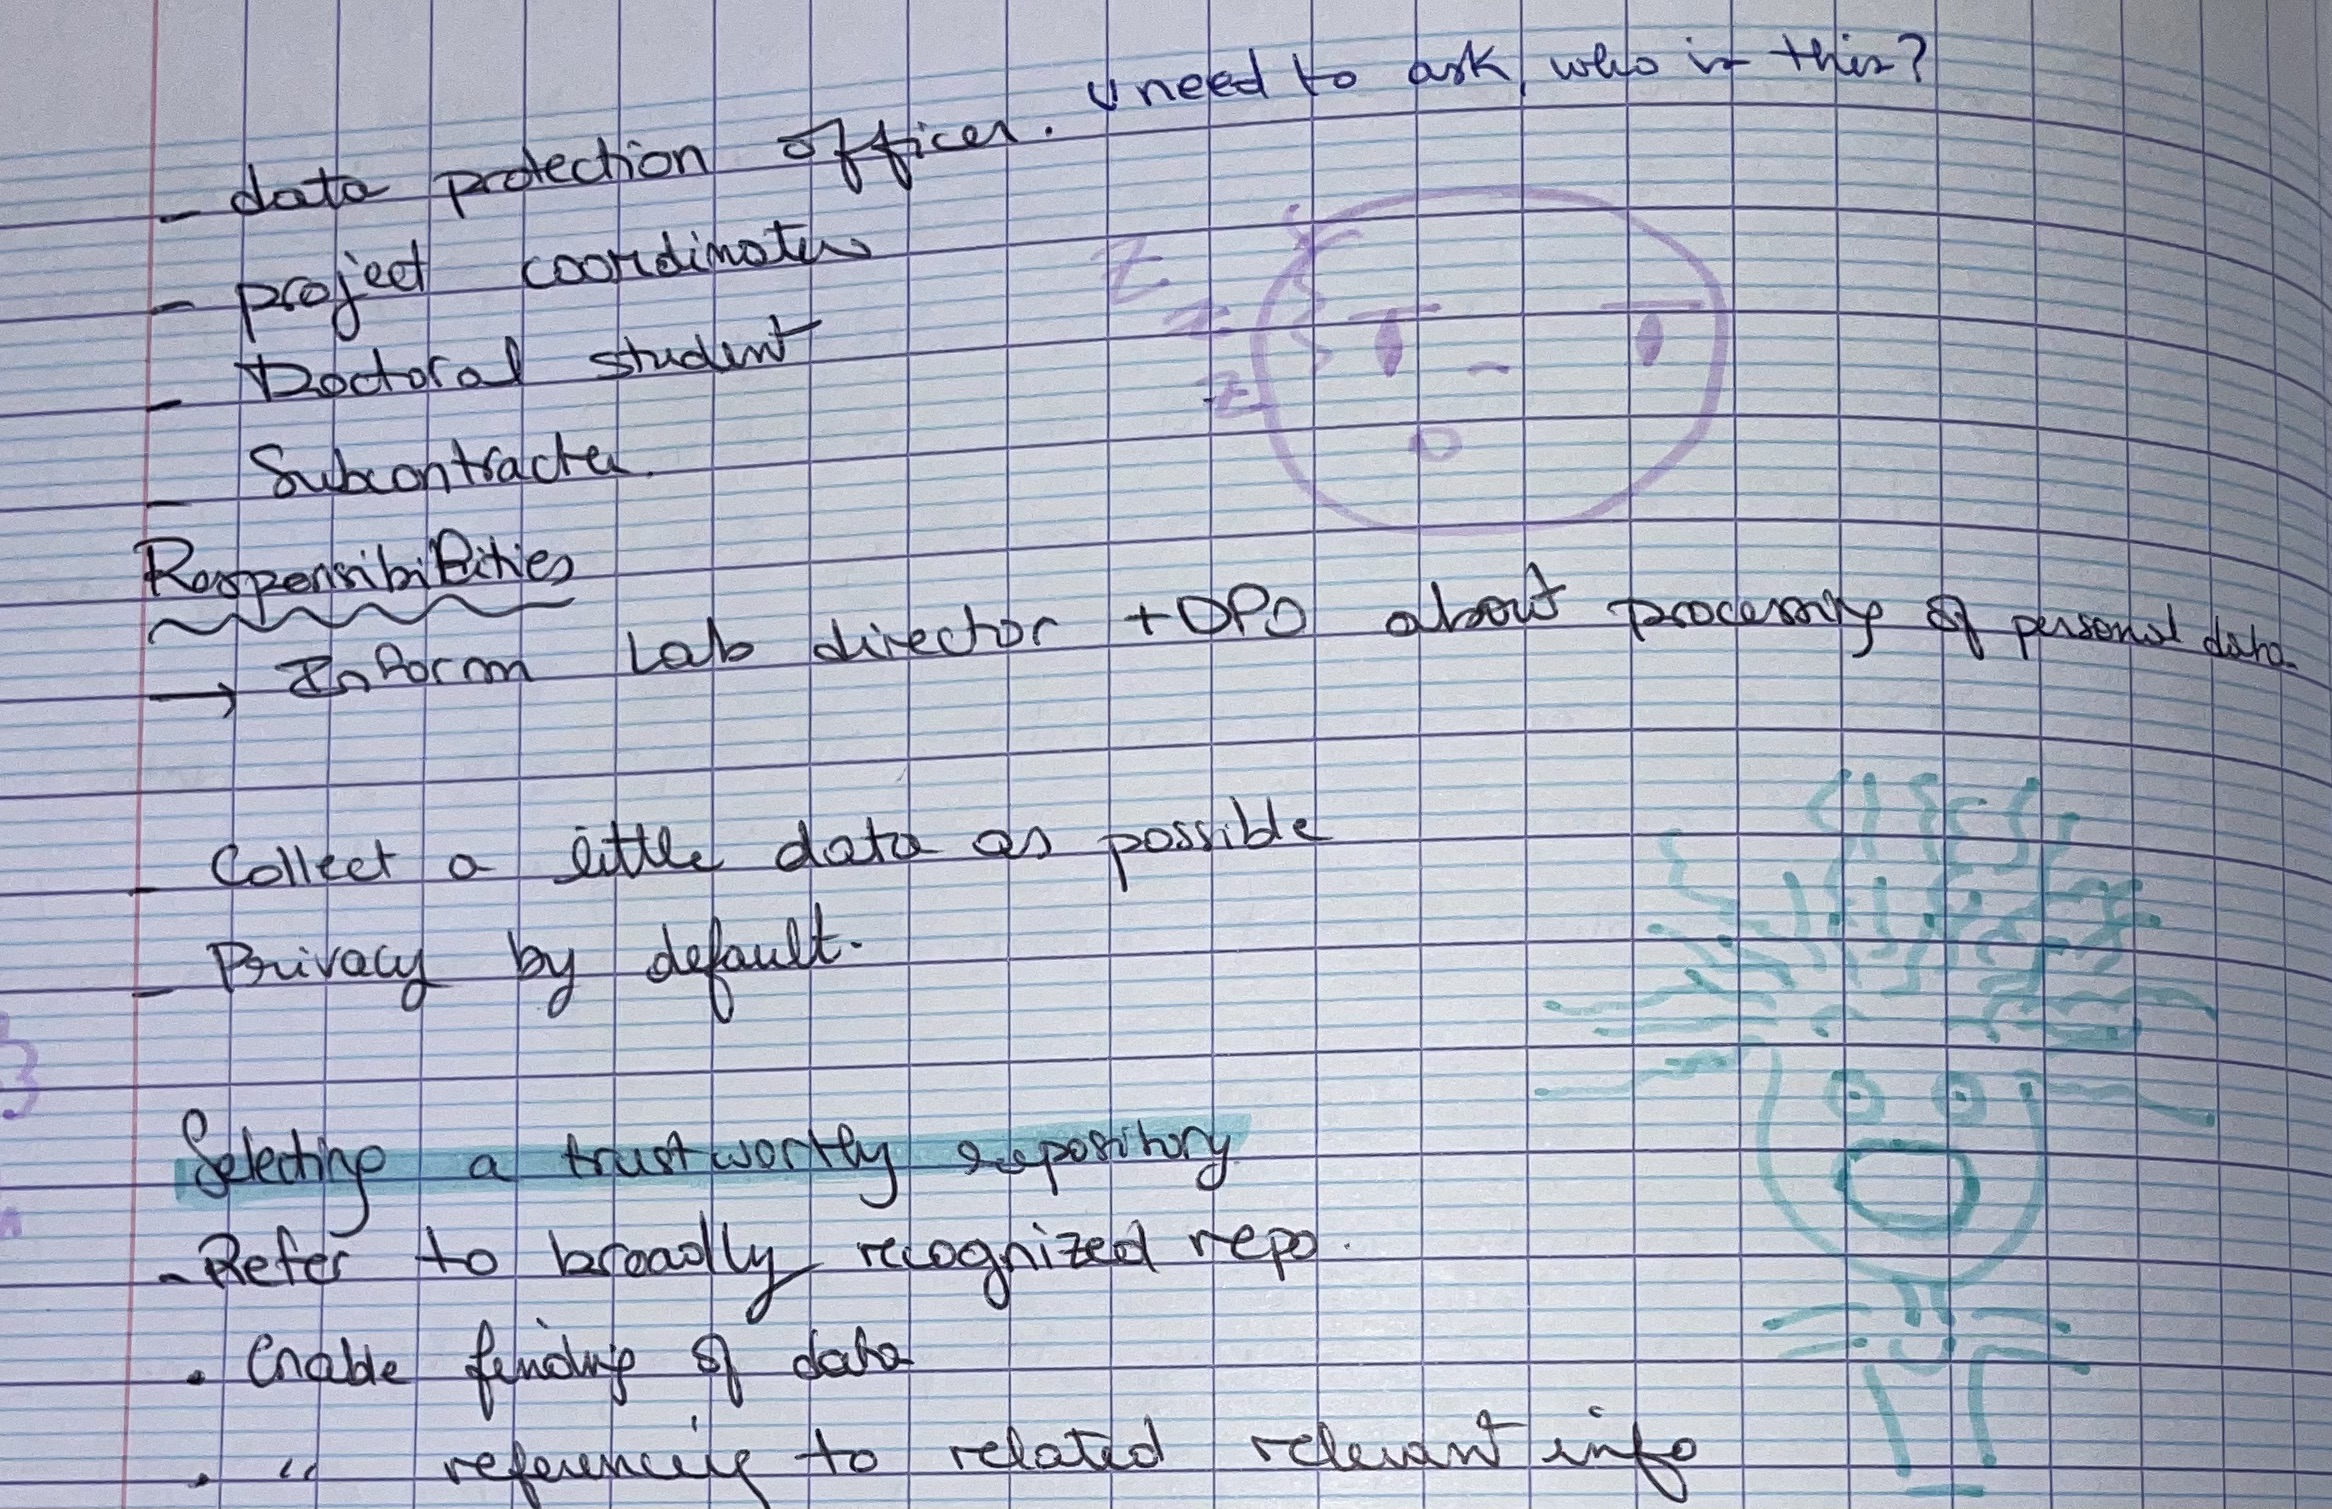 need to ask, who is this?
- data protection officer.
- project coordinator
- Doctoral student
- Subcontracter.
Responsibilities
→ Inform Lab director + DPO about processing of personal data.
- Collect a little data as possible
- Privacy by default.
Selecting a trustworthy repository
- Refer to broadly recognized repo.
• Enable finding of data
• " referencing to related relevant info
z
z
z